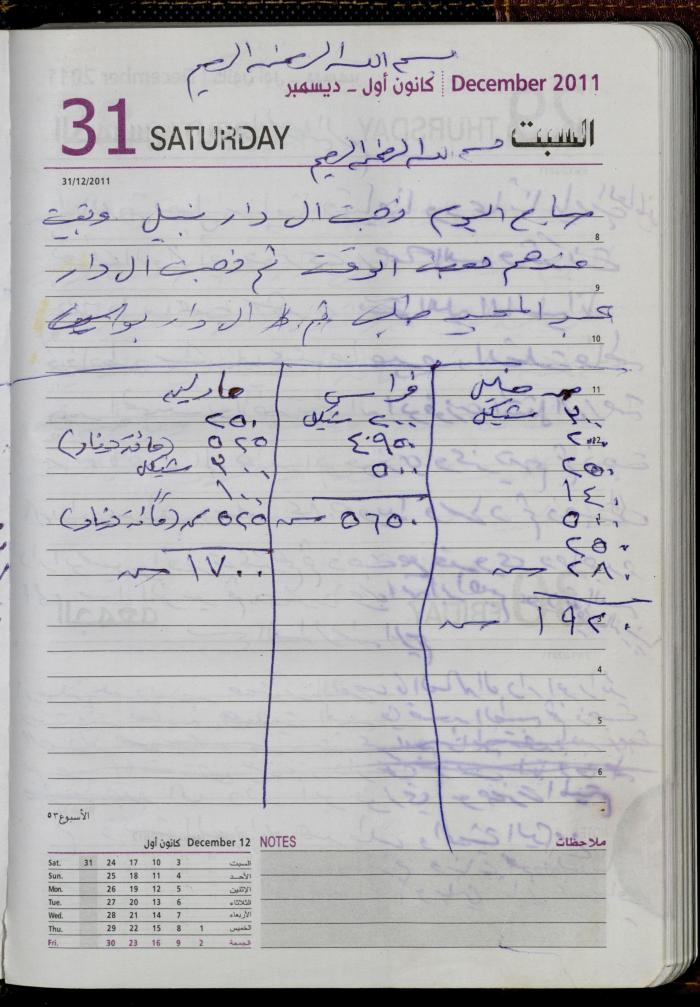 بسم الله الرحمن الرحيم
كانون أول - ديسمبر December 2011
31 SATURDAY السبت
بسم الله الرحمن الرحيم
31/12/2011
صباح اليوم ذهبت ال دار نبيل وبقيت
8
عندهم بعض الوقت ثم ذهبت ال دار
9
عبد المجيد ثم ال دار
10
11
خليل
٣٠٠ شيكل
٢٠٠
٢٥٠
١٤٠
٥٠٠
٢٥٠
٢٨٠
١٩٢٠
فراس
٢٠٠ شيكل
٤٠٩٥٠
٥٠٠
٥٦٥٠
٢٥٠
٥٢٥ (مائة دينار)
٣٠٠ شيكل
١٠٠
٥٢٥ (مائة دينار)
١٧٠٠
4
5
6
الأسبوع ٥٣
كانون أول December 12
Sat. 31 24 17 10 3 السبت
Sun. 25 18 11 4 الأحد
Mon. 26 19 12 5 الإثنين
Tue. 27 20 13 6 الثلاثاء
Wed. 28 21 14 7 الأربعاء
Thu. 29 22 15 8 1 الخميس
Fri. 30 23 16 9 2 الجمعة
NOTES ملاحظات